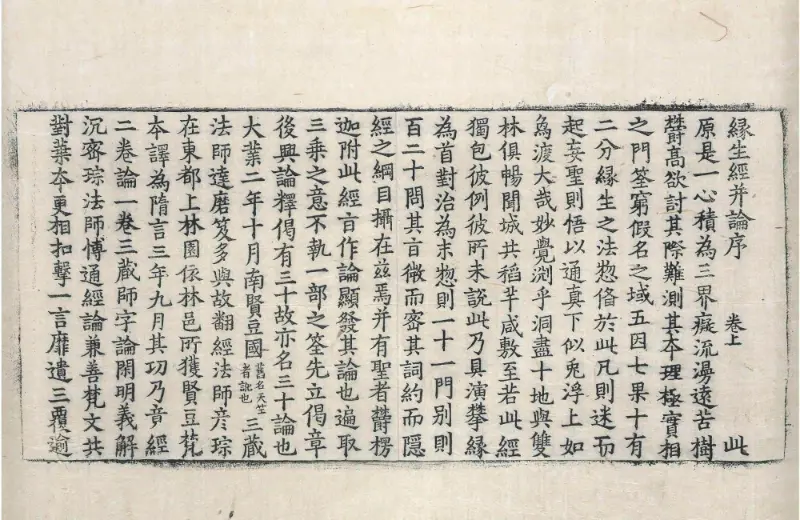 縁生經并論序 卷上 此
原是一心積為三界癡流漫遠苦樹
欝高欲討其際難測其本理極實相
之門筌窮假名之域五因七果十有
二分縁生之法惣俻於此凡則迷而
起妄聖則悟以通真下似兎浮上如
爲渡大哉妙覺渕乎洞盡十地與雙
林俱暢聞城共稻芉咸敷至若此經
獨包彼例彼所未說此乃具演攀縁
為首對治為末惣則一十一門別則
百二十問其㫖微而密其詞約而隱
經之綱目攝在兹焉并有聖者欝楞
迦附此經㫖作論顯發其論也遍取
三乗之意不執一部之筌先立偈章
後興論釋偈有三十故亦名三十論也
大業二年十月南賢豆國舊名天竺者訛也三藏
法師達磨笈多與故翻經法師彦琮
在東都上林園依林邑所獲賢豆梵
本譯為隋言三年九月其功乃竟經
二卷論一卷三藏師字論閑明義解
沉密琮法師博通經論兼善梵文共
對葉本更相扣擊一言靡遺三覆逾